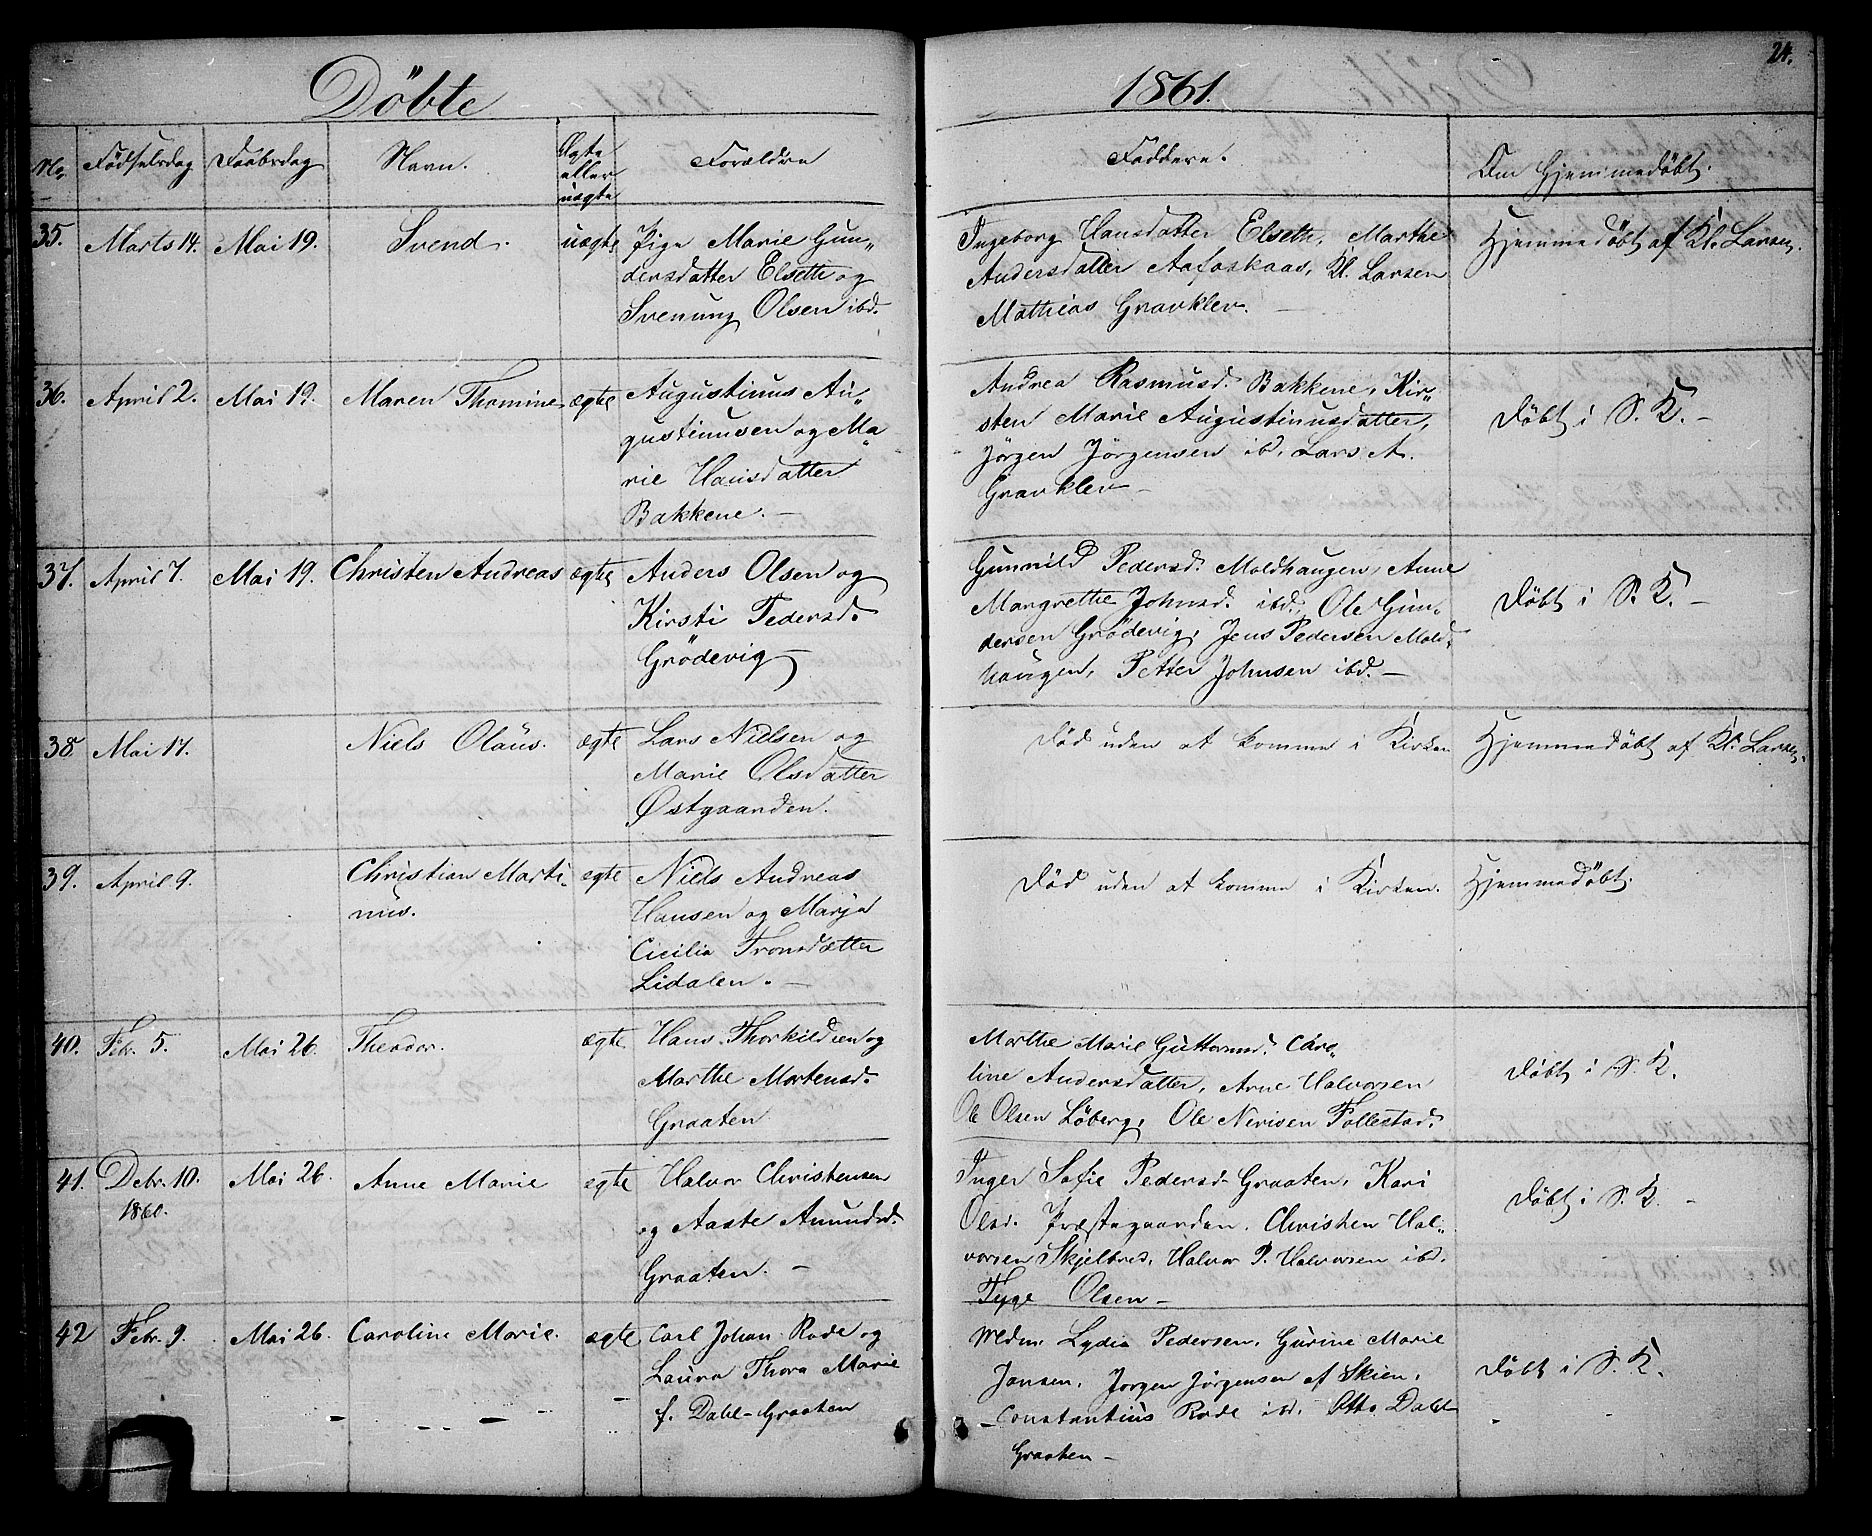 24.
Döbte
1861.
No Födselsdag Daabsdag Navn. Ægte eller uægte Forældre Faddere. Om Hjemmedöbt.
35. Marts 14. Mai 19. Svend. uægte Pige Marie Gun„
dersdatter Elseth og
Svenung Olsen ibd.
Ingeborg Hansdatter Elseth, Marthe
Andersdatter Aafoskaas, Kl. Larsen
Mathias Gravklev.
Hjemmedöbt af Kl. Larsen.
36. April 2. Mai 19. Maren Thomine ægte Augustinus Au„
gustinusen og Ma„
rie Hansdatter
Bakkene. —
Andrea Rasmusd. Bakkene, Kir„
sten Marie Augustinusdatter,
Jörgen Jörgensen ibd, Lars A.
Gravklev —
Döbt i S. K. —
37. April 7. Mai 19. Christen Andreas ægte Anders Olsen og
Kirsti Pedersd.
Grödevig —
Gunnild Pedersd. Moldhaugen, Anne
Margrethe Johnsd. ibd., Ole Gun„
dersen Grödevig, Jens Pedersen Mold„
haugen, Petter Johnsen ibd. —
Döbt i S. K. —
38 Mai 17. Niels Olaüs. ægte Lars Nielsen og
Marie Olsdatter
Østgaarden.
Död uden at komme i Kirken
Hjemmedöbt af Kl. Larsen.
39. April 9. Christian Marti„
nüs.
ægte Niels Andreas
Hansen og Marja
Cicilia Tronsdatter
Lidalen. —
Död uden at komme i Kirken.
Hjemmedöbt.
40. Febr. 5. Mai 26. Theodor. ægte Hans Thorkildsen og
Marthe Mortensd.
Graaten
Marthe Marie Guttormsd. Caro„
line Andersdatter, Arne Halvorsen
Ole Olsen Löberg, Ole Nirisen Follestad.
Döbt i S. K.
41. Debr. 10. Mai 26. Anne Marie ægte Halvor Christensen
1860.
og Aaste Amundsd.
Graaten. —
Inger Sofie Pedersd. Graaten, Kari
Olsd. Præstegaarden, Christen Hal„
vorsen Skjelbred, Halvor P. Halvorsen ibd,
Tyge Olsen —
Döbt i S. K. —
42 Febr. 9. Mai 26. Caroline Marie. ægte Carl Johan Rode og
Laura Thora Marie
f. Dahl - Graaten
Mdm. Lydia Pedersen, Gurine Marie
Jansen, Jörgen Jörgensen af Skien,
Constantius Rode ibd. Otto Dahl
Graaten —
Döbt i S. K.